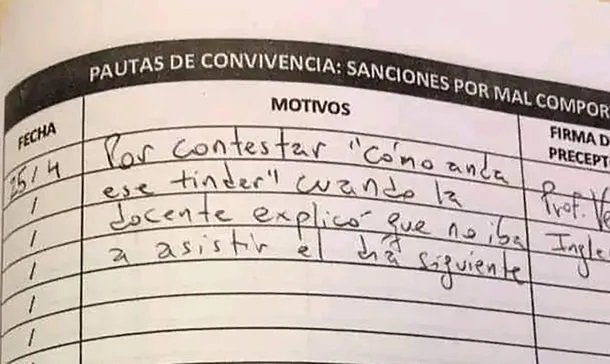 PAUTAS DE CONVIVENCIA: SANCIONES POR MAL COMPOR
FECHA MOTIVOS FIRMA D
PRECEPT
25/4 Por contestar "cómo anda
ese tinder" cuando la Prof.
docente explicó que no iba Ingle
a asistir el día siguiente